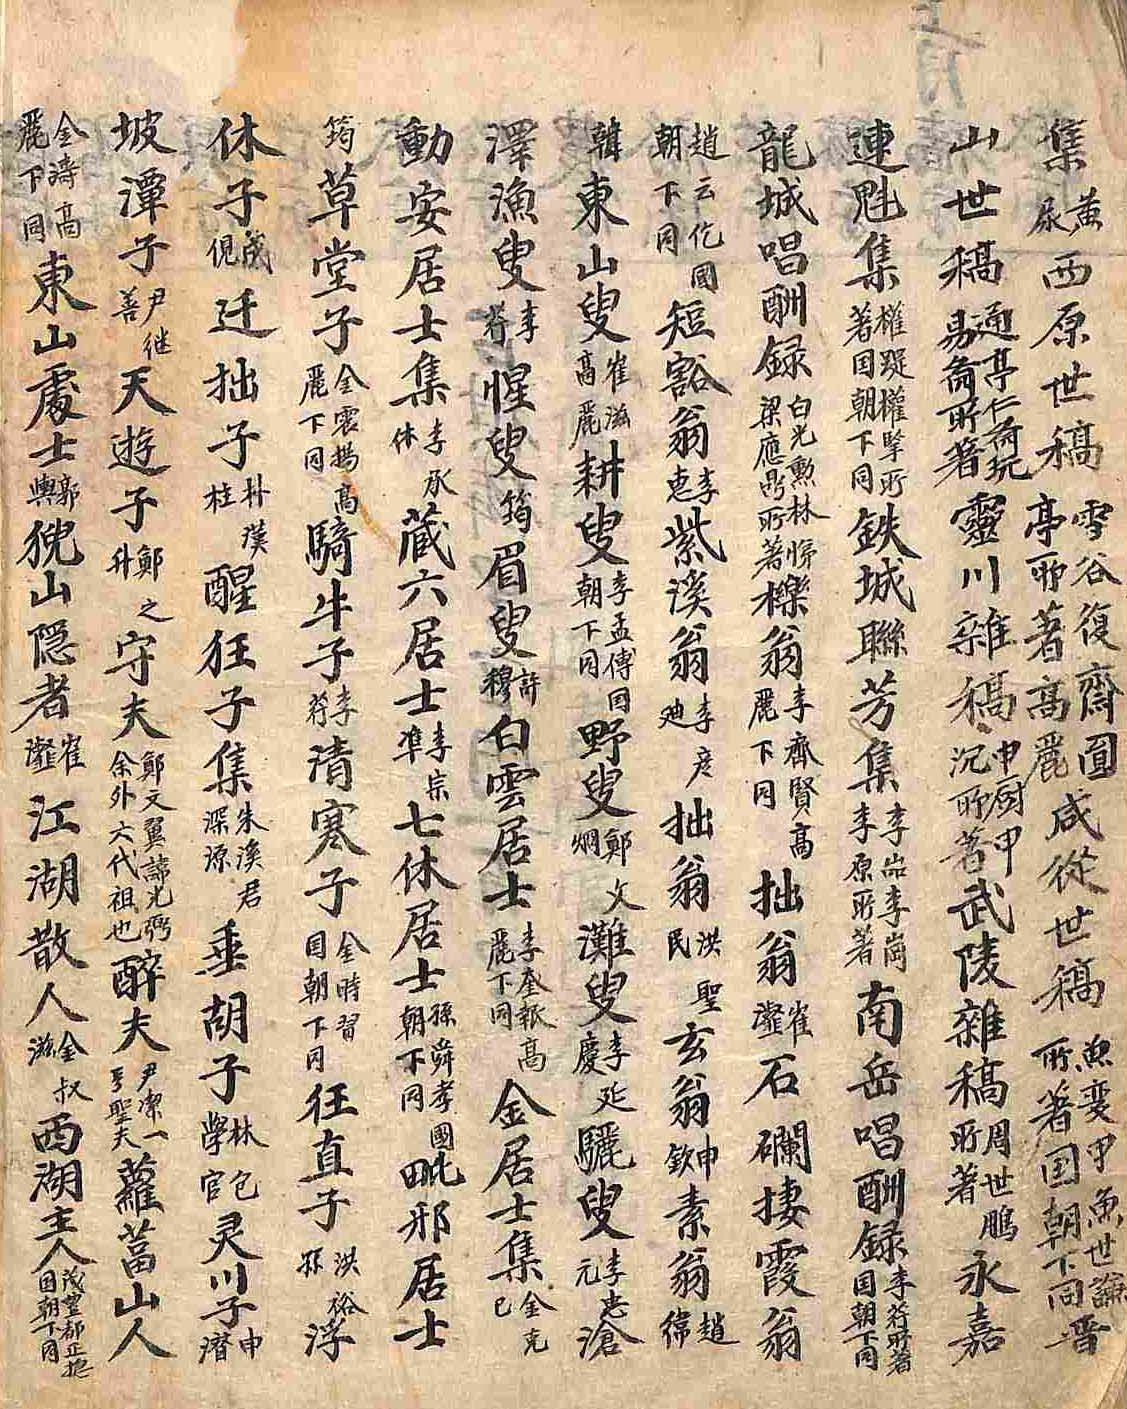 集黃㞙西原世稿雪谷復齋圎亭所著高麗咸從世稿魚変甲魚世謙所著国朝下同晋
山世稿通亭仁斎玩易斎所著靈川雜稿申厨申沉所著武陵雜稿周世鵬所著永嘉
連魁集權踶權擥所著国朝下同鉄城聯芳集李嵒李崗李原所著南岳唱酬録李荇所著国朝下同
龍城唱酬録白光勲林悌梁應鼎所著櫟翁李齊賢高麗下同拙翁崔瀣石磵捿霞翁
趙云仡國朝下同短豁翁李恵紫溪翁李彦迪拙翁洪聖民玄翁申欽素翁趙徫
韓東山叟崔滋高麗耕叟李孟傳国朝下同野叟鄭文烱灘叟李延慶驪叟李忠元滄
澤漁叟李荇惺叟筠眉叟許穆白雲居士李奎報高麗下同金居士集金克己
動安居士集李承休蔵六居士李宗準七休居士孫舜孝國朝下同毗邪居士
筠草堂子金震揚高麗下同騎牛子李荇清寒子金時習国朝下同狂直子洪裕孫浮
休子成俔迂拙子朴漢柱醒狂子集朱溪君深源垂胡子林包學官灵川子申潜
坡潭子尹継善天遊子鄭之升守夫鄭文翼諱光弼余外六代祖也醉夫尹潔一号聖夫蘿葍山人
金濤高麗下同東山處士郭輿猊山隠者崔瀣江湖散人金叔滋西湖主人茂豊都正揔国朝下同